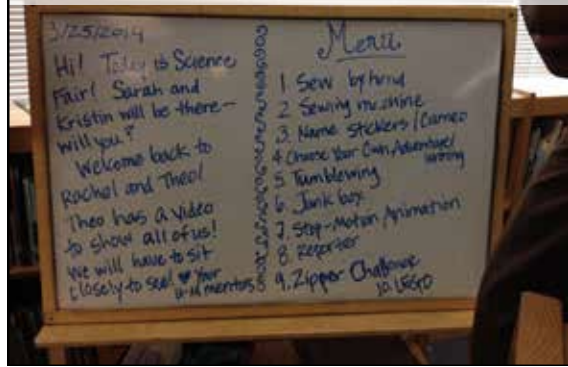 3/25/2014
Hi! Today is Science
Fair! Sarah and
Kristin will be there—
will you?
Welcome back to
Rachel and Theo!
Theo has a video
to show all of us!
We will have to sit
closely to see! ♥ Your
U-M mentors
Menu
1 Sew by hand
2 Sewing machine
3. Name Stickers / Cameo
4 Choose Your Own Adventure/
Writing
5 Tumblewing
6. Junk box
7 Stop-Motion Animation
8 Reporter
9. Zipper Challenge
10. LEGO